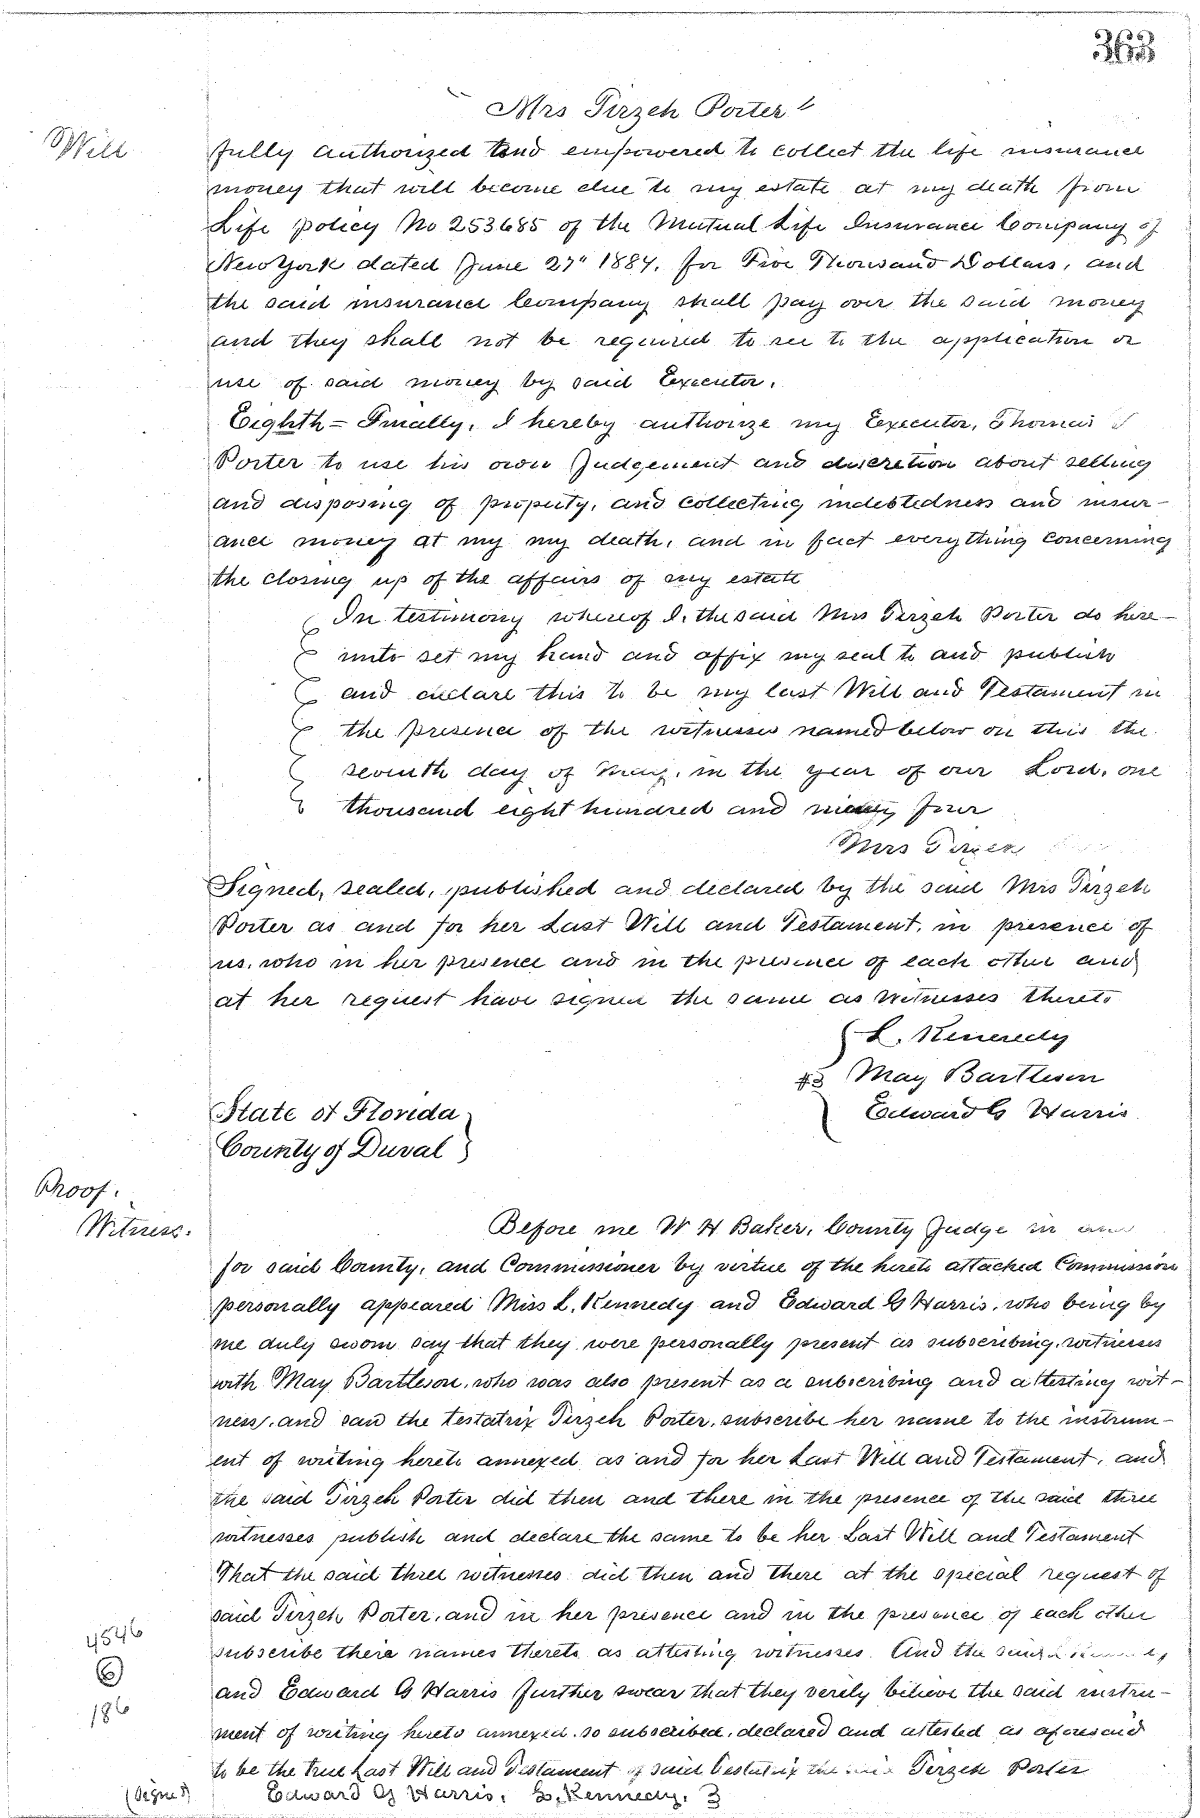 363
Mrs Tirzeh Porter
Will
fully authorized and empowered to collect the life insurance
money that will become due to my estate at my death from
Life policy No 253685 of the Mutual Life Insurance Company of
New York dated June 27" 1884. for Five Thousand Dollars, and
the said insurance Company shall pay over the said money
and they shall not be required to see to the application or
use of said money by said Executor.
Eighth = Finally, I hereby authorize my Executor, Thomas
Porter to use his own Judgement and discretion about selling
and disposing of property, and collecting indebtedness and insur-
ance money at my my death, and in fact everything concerning
the closing up of the affairs of my estate
In testimony whereof I, the said Mrs Tirzeh Porter do here-
unto set my hand and affix my seal to and publish
and declare this to be my last Will and Testament in
the presence of the witnesses named below on this the
seventh day of May, in the year of our Lord, one
thousand eight hundred and ninety four
Mrs Tirzeh
Signed, sealed, published and declared by the said Mrs Tirzeh
Porter as and for her Last Will and Testament, in presence of
us, who in her presence and in the presence of each other and
at her request have signed the same as witnesses thereto
L. Kennedy
#3 May Bartleson
Edward G Harris
State of Florida
County of Duval
Proof.
Witness.
Before me W H Baker, County Judge in and
for said County, and Commissioner by virtue of the hereto attached Commission
personally appeared Miss L. Kennedy and Edward G Harris, who being by
me duly sworn say that they were personally present as subscribing witnesses
with May Bartleson, who was also present as a subscribing and attesting wit-
ness, and saw the testatrix Tirzeh Porter, subscribe her name to the instrum-
ent of writing hereto annexed as and for her Last Will and Testament, and
the said Tirzeh Porter did then and there in the presence of the said three
witnesses publish and declare the same to be her Last Will and Testament
That the said three witnesses did then and there at the special request of
said Tirzeh Porter, and in her presence and in the presence of each other
subscribe there names thereto as attesting witnesses. And the said L Kennedy
and Edward G Harris further swear that they verily believe the said instru-
ment of writing hereto annexed, so subscribed, declared and attested as aforesaid
to be the true Last Will and Testament of said Testatrix the said Tirzeh Porter
(Signed) Edward G Harris, L. Kennedy. 3
4546
6
186